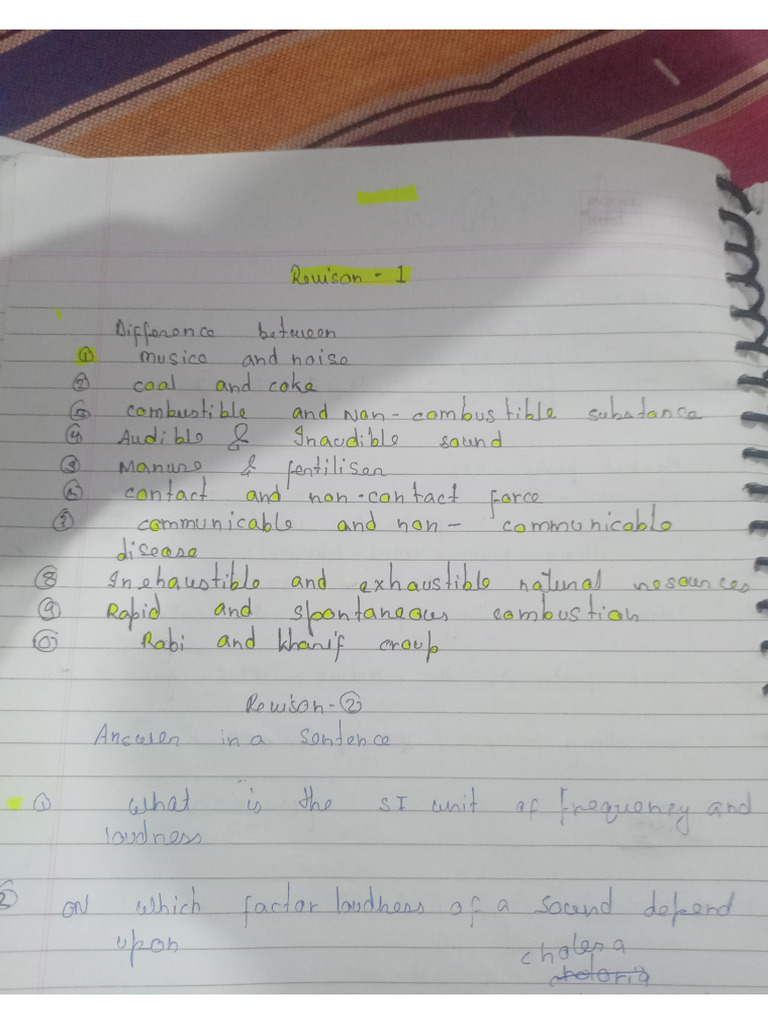 Revison - 1
Difference between
① musice and noise
② coal and coke
combustible and Non-combustible substance
④ Audible & Inaudible sound
③ Manure & fertiliser
contact and non-contact force
communicable and non- communicable
disease
⑧ Inehaustible and exhaustible natural resources
⑨ Rapid and spontaneous combustion
Rabi and kharif croup
Revison-②
Answer in a sentence
① what is the SI unit of frequency and
loudness
② ON which factor loudness of a sound depend
upon
cholera